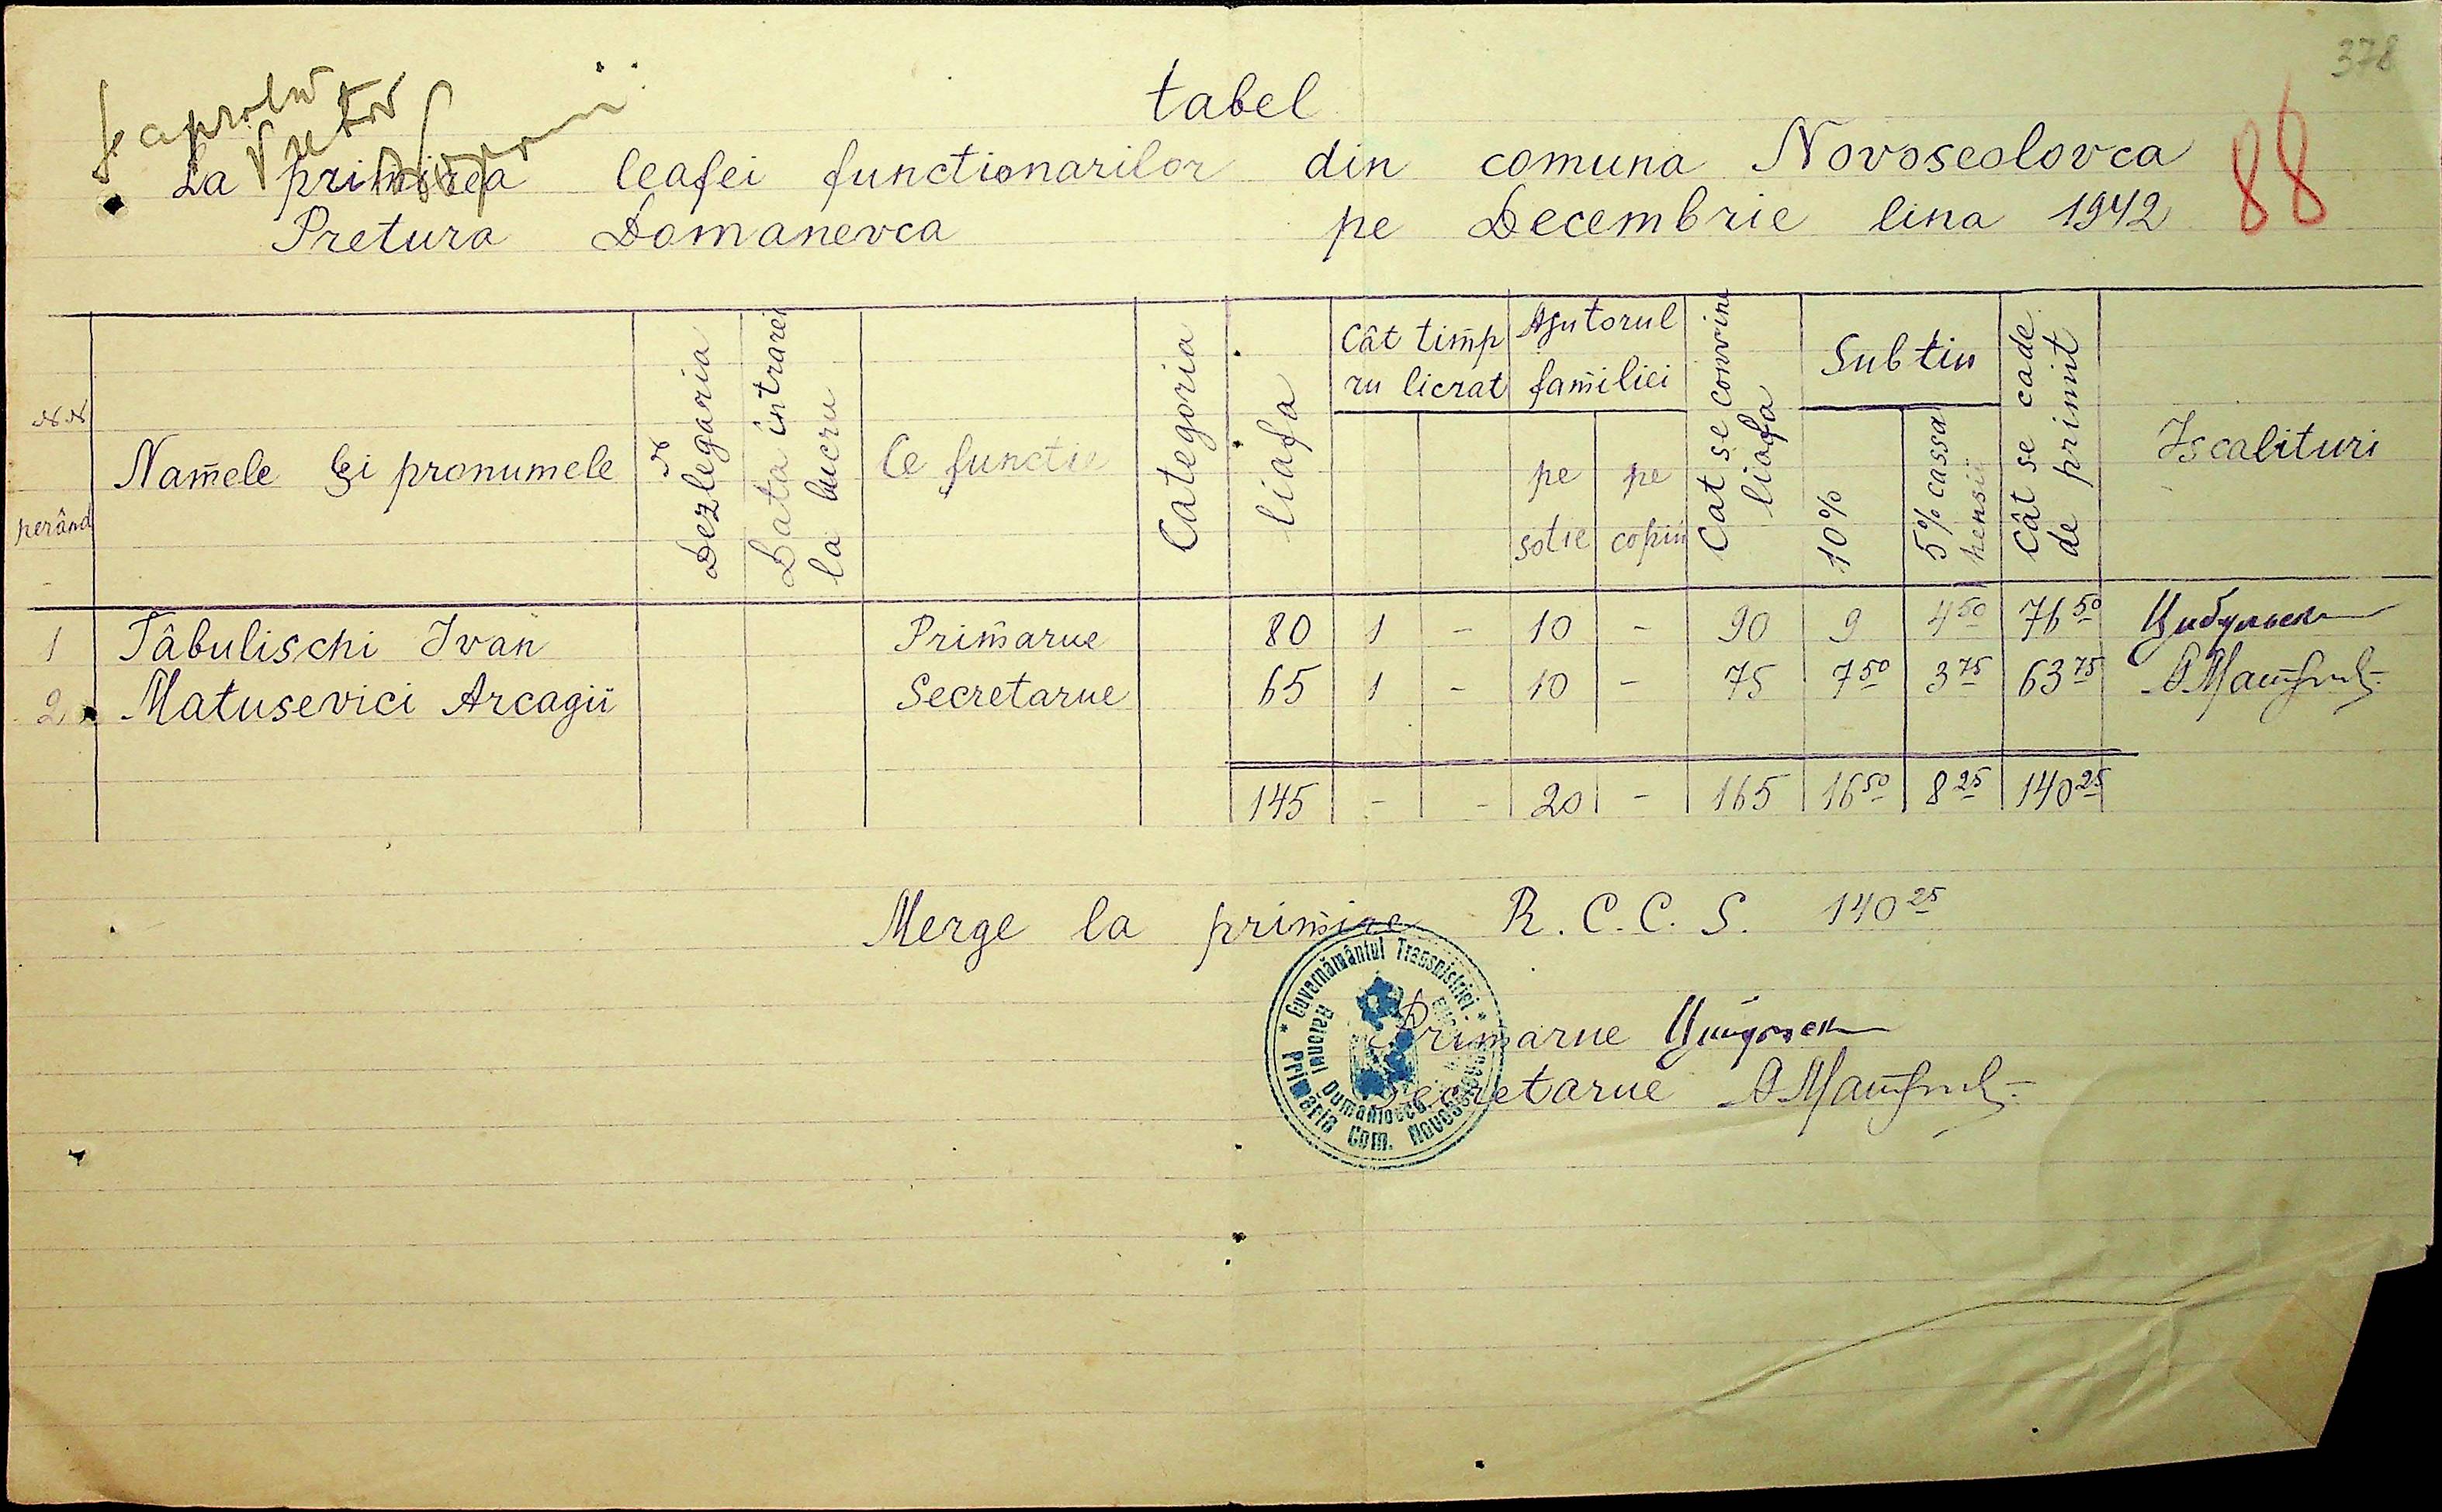 378
88
Se aprobă
Pretor
tabel
La primirea leafei functionarilor din comuna Novoseolovca
Pretura Domanevca pe Decembrie lina 1942
NN perând
Namele Și pronumele
N Dezlegaria
Data intrarei la lucru
Ce functie
Categoria
liafa
Cât timp ru licrat
Ajutorul familiei
pe sotie
pe copiii
Cat se convine liafa
Subtiu
10%
5% cassa pensii
Cât se cade de primit
Iscalituri
1 Tâbulischi Ivan Primarue 80 1 - 10 - 90 9 4 50 76 50 Цибульск
2 Matusevici Arcagii Secretarue 65 1 - 10 - 75 7 50 3 75 63 75
145 - - 20 - 165 16 50 8 25 140 25
Merge la primire R.C.C.S. 140 25
* Guvernământul Transnistriei *
Primăria Com. Novoseolovca
Raionul Dumaniovca
Primarue Цибульск
Secretarue